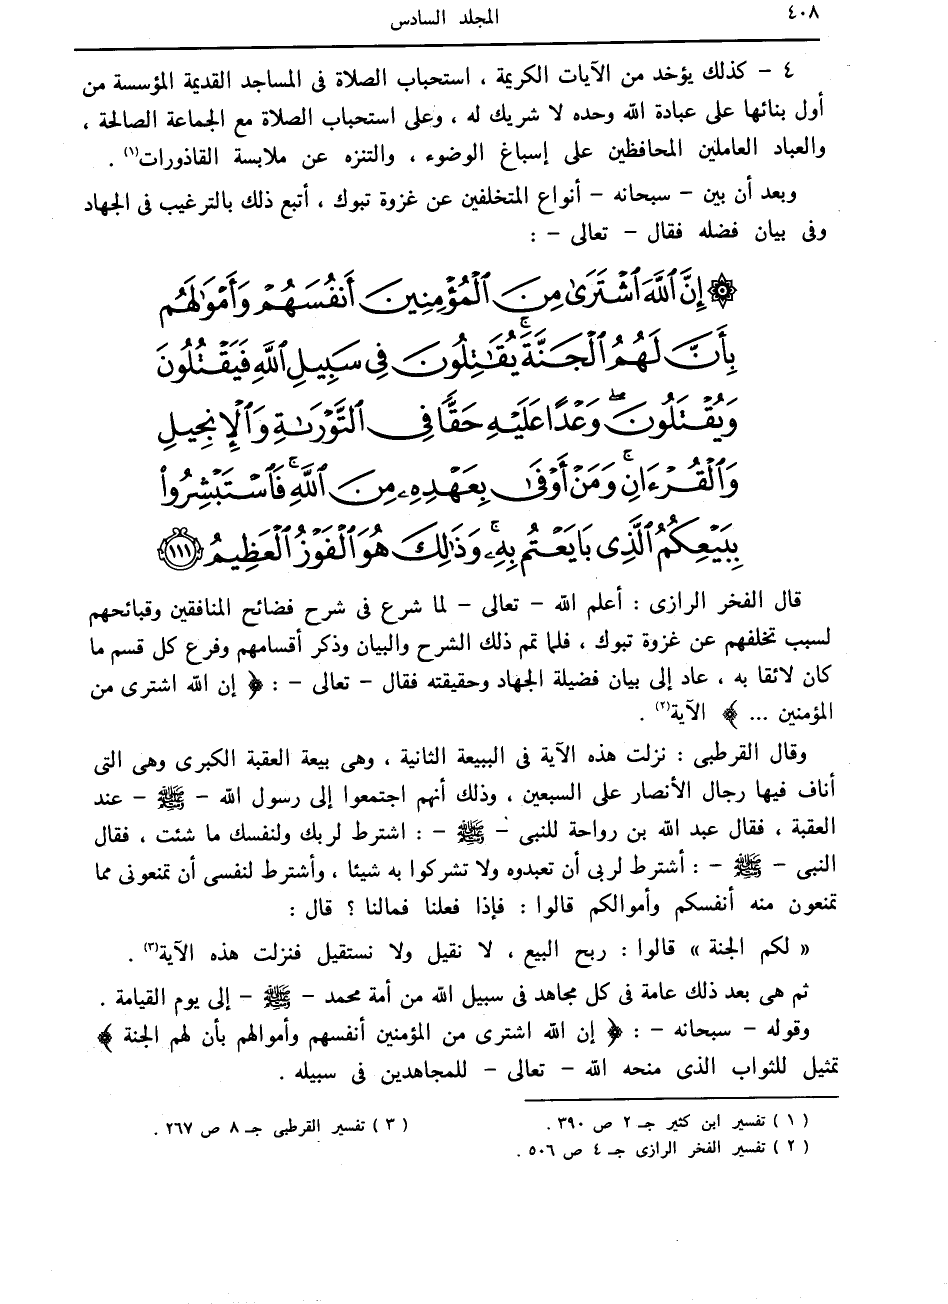 ٤٠٨
المجلد السادس
٤ – كذلك يؤخد من الآيات الكريمة ، استحباب الصلاة فى المساجد القديمة المؤسسة من
أول بنائها على عبادة الله وحده لا شريك له ، وعلى استحباب الصلاة مع الجماعة الصالحة ،
والعباد العاملين المحافظين على إسباغ الوضوء ، والتنزه عن ملابسة القاذورات(١) .
وبعد أن بين – سبحانه – أنواع المتخلفين عن غزوة تبوك ، أتبع ذلك بالترغيب فى الجهاد
وفى بيان فضله فقال – تعالى – :
۞ إِنَّ ٱللَّهَ ٱشْتَرَىٰ مِنَ ٱلْمُؤْمِنِينَ أَنفُسَهُمْ وَأَمْوَٰلَهُم
بِأَنَّ لَهُمُ ٱلْجَنَّةَ ۚ يُقَٰتِلُونَ فِى سَبِيلِ ٱللَّهِ فَيَقْتُلُونَ
وَيُقْتَلُونَ ۖ وَعْدًا عَلَيْهِ حَقًّا فِى ٱلتَّوْرَىٰةِ وَٱلْإِنجِيلِ
وَٱلْقُرْءَانِ ۚ وَمَنْ أَوْفَىٰ بِعَهْدِهِۦ مِنَ ٱللَّهِ ۚ فَٱسْتَبْشِرُوا۟
بِبَيْعِكُمُ ٱلَّذِى بَايَعْتُم بِهِۦ ۚ وَذَٰلِكَ هُوَ ٱلْفَوْزُ ٱلْعَظِيمُ ١١١
قال الفخر الرازى : أعلم الله – تعالى – لما شرع فى شرح فضائح المنافقين وقبائحهم
لسبب تخلفهم عن غزوة تبوك ، فلما تم ذلك الشرح والبيان وذكر أقسامهم وفرع كل قسم ما
كان لائقا به ، عاد إلى بيان فضيلة الجهاد وحقيقته فقال – تعالى – : ﴿ إن الله اشترى من
المؤمنين ... ﴾ الآية(٢) .
وقال القرطبى : نزلت هذه الآية فى الببيعة الثانية ، وهى بيعة العقبة الكبرى وهى التى
أناف فيها رجال الأنصار على السبعين ، وذلك أنهم اجتمعوا إلى رسول الله – ﷺ – عند
العقبة ، فقال عبد الله بن رواحة للنبى – ﷺ – : اشترط لربك ولنفسك ما شئت ، فقال
النبى – ﷺ – : أشترط لربى أن تعبدوه ولا تشركوا به شيئا ، وأشترط لنفسى أن تمنعونى مما
تمنعون منه أنفسكم وأموالكم قالوا : فإذا فعلنا فمالنا ؟ قال :
« لكم الجنة » قالوا : ربح البيع ، لا نقيل ولا نستقيل فنزلت هذه الآية(٣) .
ثم هى بعد ذلك عامة فى كل مجاهد فى سبيل الله من أمة محمد – ﷺ – إلى يوم القيامة .
وقوله – سبحانه – : ﴿ إن الله اشترى من المؤمنين أنفسهم وأموالهم بأن لهم الجنة ﴾
تمثيل للثواب الذى منحه الله – تعالى – للمجاهدين فى سبيله .
( ١ ) تفسير ابن كثير جـ ٢ ص ٣٩٠ .
( ٢ ) تفسير الفخر الرازى جـ ٤ ص ٥٠٦ .
( ٣ ) تفسير القرطبى جـ ٨ ص ٢٦٧ .